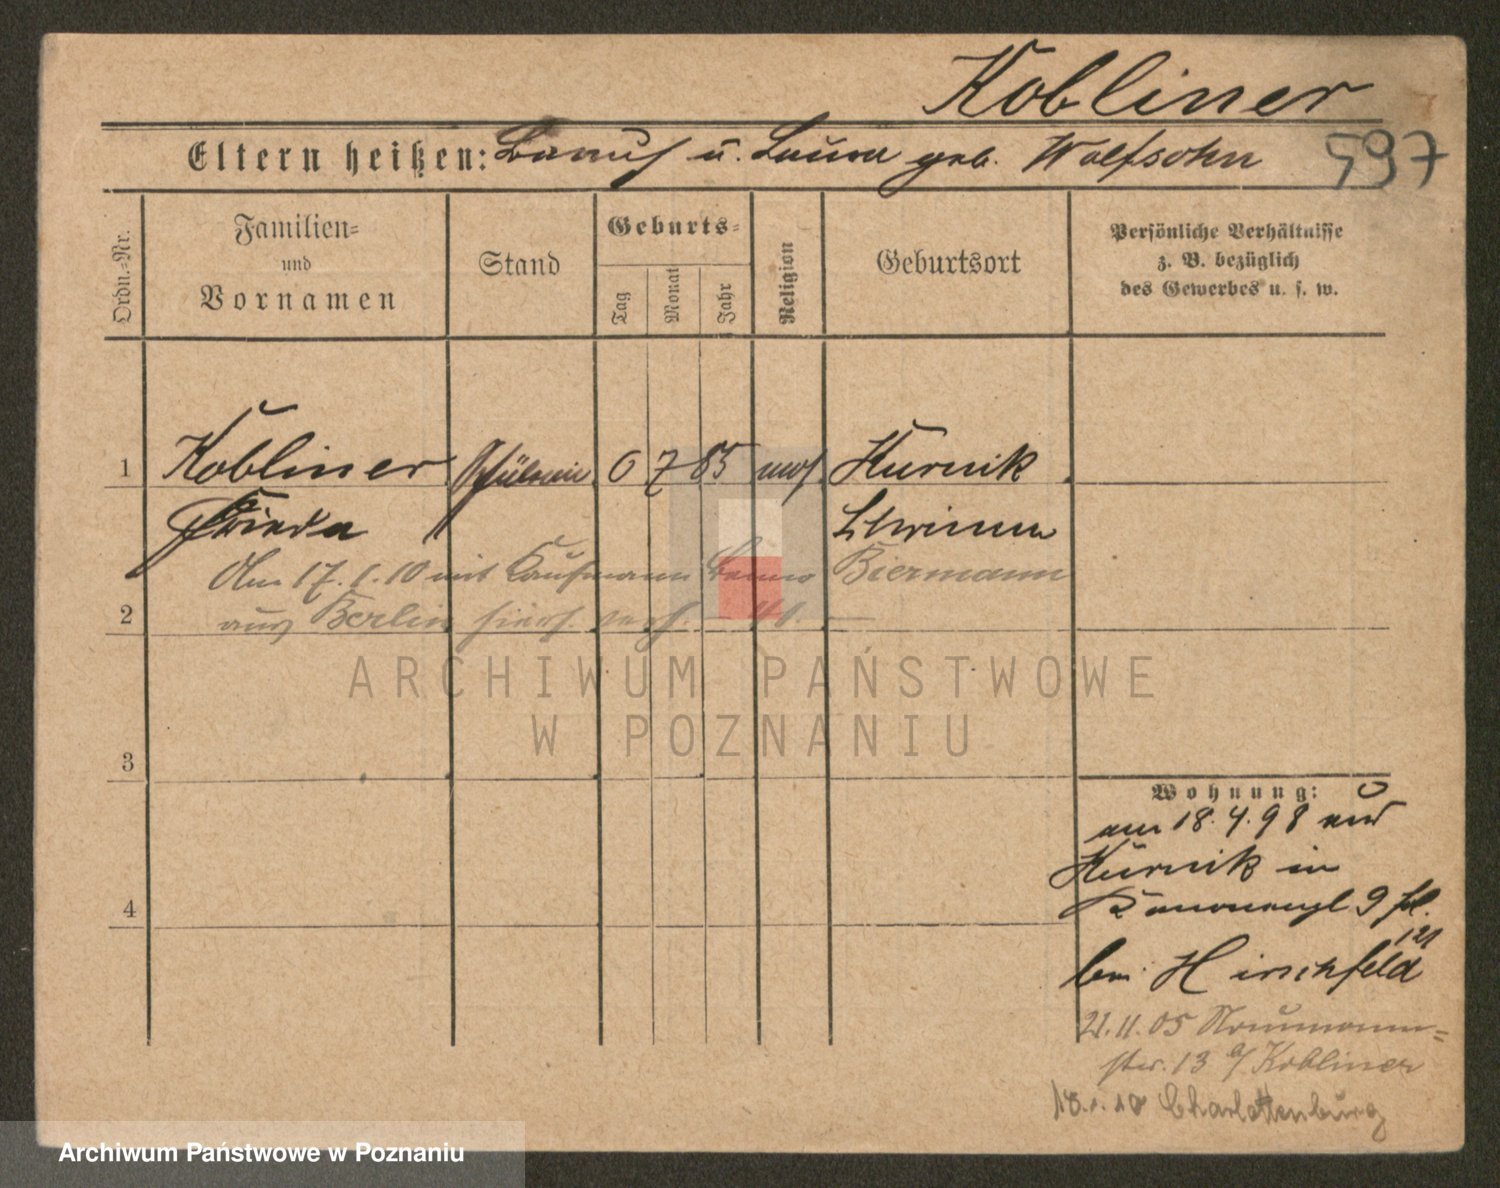 Kobliner
Eltern heißen: Baruch u. Laura geb. Wolfsohn 597
Ordn.-Nr.
Familien-
und
Vornamen
Stand
Geburts-
Tag
Monat
Jahr
Religion
Geburtsort
Persönliche Verhältnisse
z. B. bezüglich
des Gewerbes u. s. w.
1 Kobliner Schülerin 6 7 85 mos Kurnik
Frieda Schrimm
Am 17.1.10 mit Kaufmann Benno Biermann
aus Berlin hier verh.
2
3
4
Wohnung:
am 18.4.98 aus
Kurnik in
9
121
bei Hirschfeld
21.11.05 Naumann=
str. 13 b/ Kobliner
18.1.10 Charlottenburg
ARCHIWUM PAŃSTWOWE
W POZNANIU
Archiwum Państwowe w Poznaniu